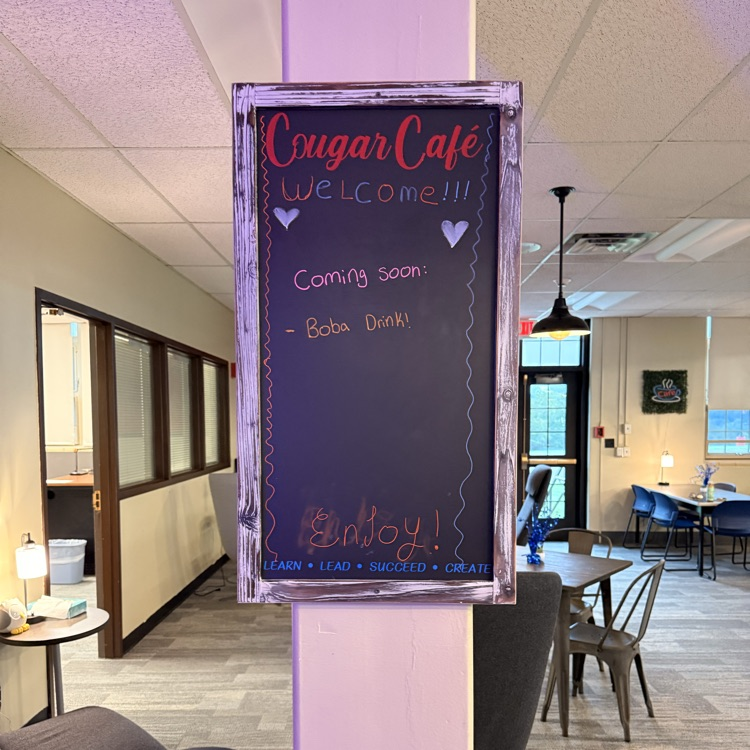 Cougar Café
WELCOME!!!
Coming soon:
- Boba Drink!
EnJoy!
LEARN • LEAD • SUCCEED • CREATE
Café